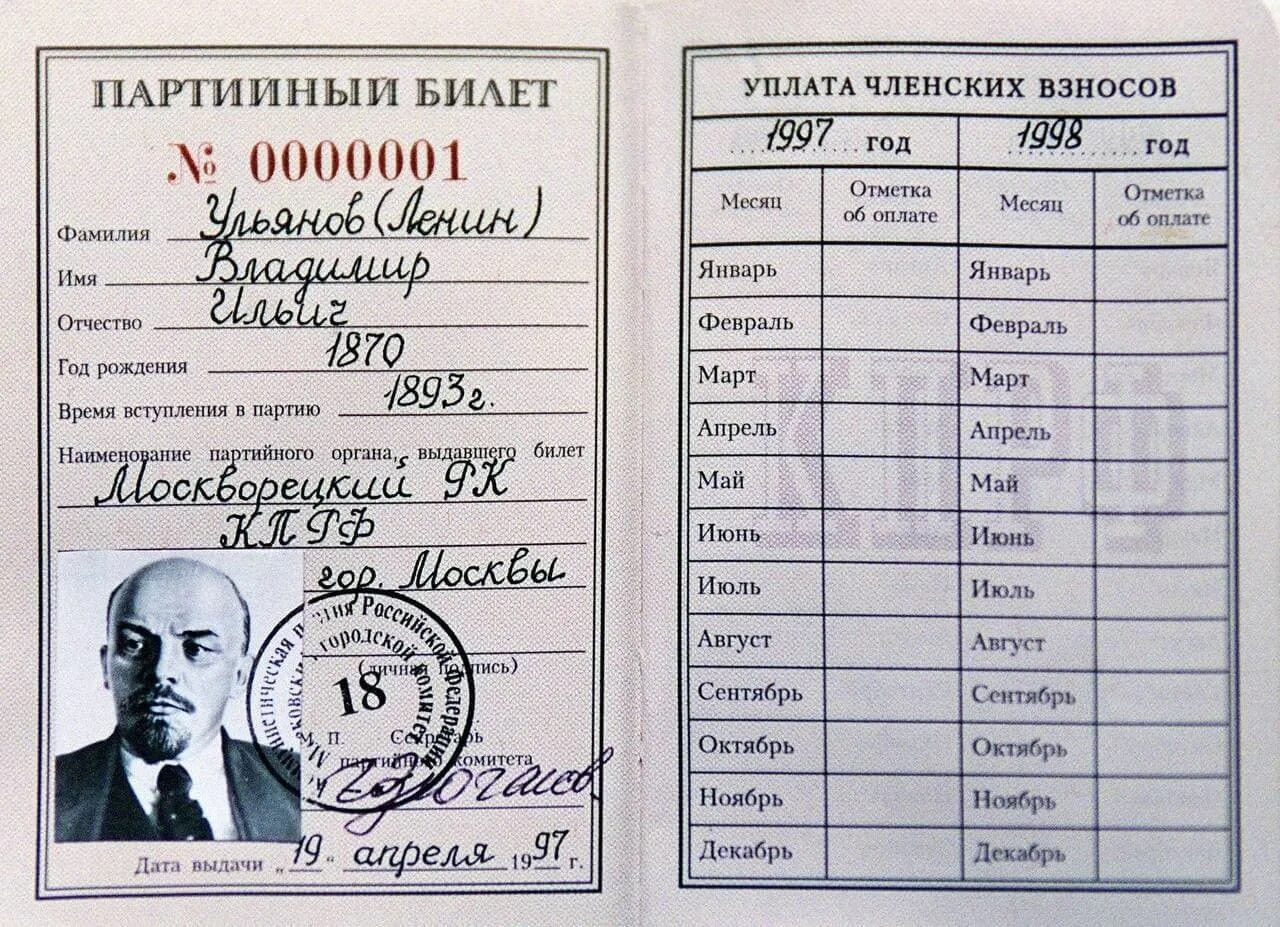 ПАРТИЙНЫЙ БИЛЕТ
№ 0000001
Фамилия Ульянов (Ленин)
Имя Владимир
Отчество Ильич
Год рождения 1870
Время вступления в партию 1893 г.
Наименование партийного органа, выдавшего билет
Москворецкий РК
КПРФ
гор. Москвы
(личная подпись)
М. П. Секретарь
партийного комитета
Российской Федерации
Московский городской комитет
18
Дата выдачи „19“ апреля 1997 г.
УПЛАТА ЧЛЕНСКИХ ВЗНОСОВ
1997 год 1998 год
Месяц Отметка об оплате Месяц Отметка об оплате
Январь Январь
Февраль Февраль
Март Март
Апрель Апрель
Май Май
Июнь Июнь
Июль Июль
Август Август
Сентябрь Сентябрь
Октябрь Октябрь
Ноябрь Ноябрь
Декабрь Декабрь